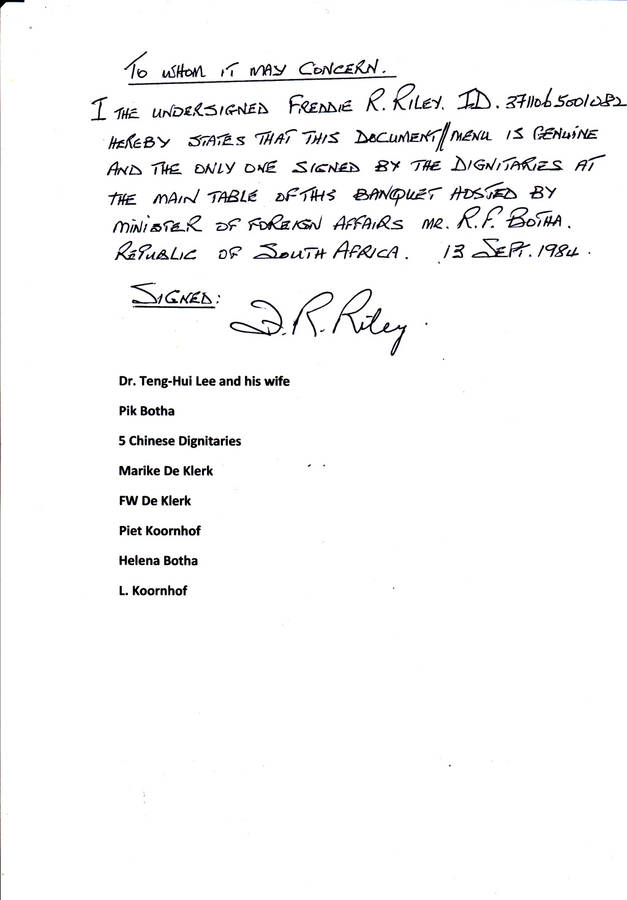 To whom it may Concern.
I the undersigned Freddie R. Riley. I.D. 3711065001282
hereby states that this document//menu is genuine
and the only one signed by the dignitaries at
the main table of this banquet hosted by
Minister of Foreign Affairs Mr. R.F. Botha.
Republic of South Africa. 13 Sept. 1984.
Signed:
F.R. Riley.
Dr. Teng-Hui Lee and his wife
Pik Botha
5 Chinese Dignitaries
Marike De Klerk
FW De Klerk
Piet Koornhof
Helena Botha
L. Koornhof